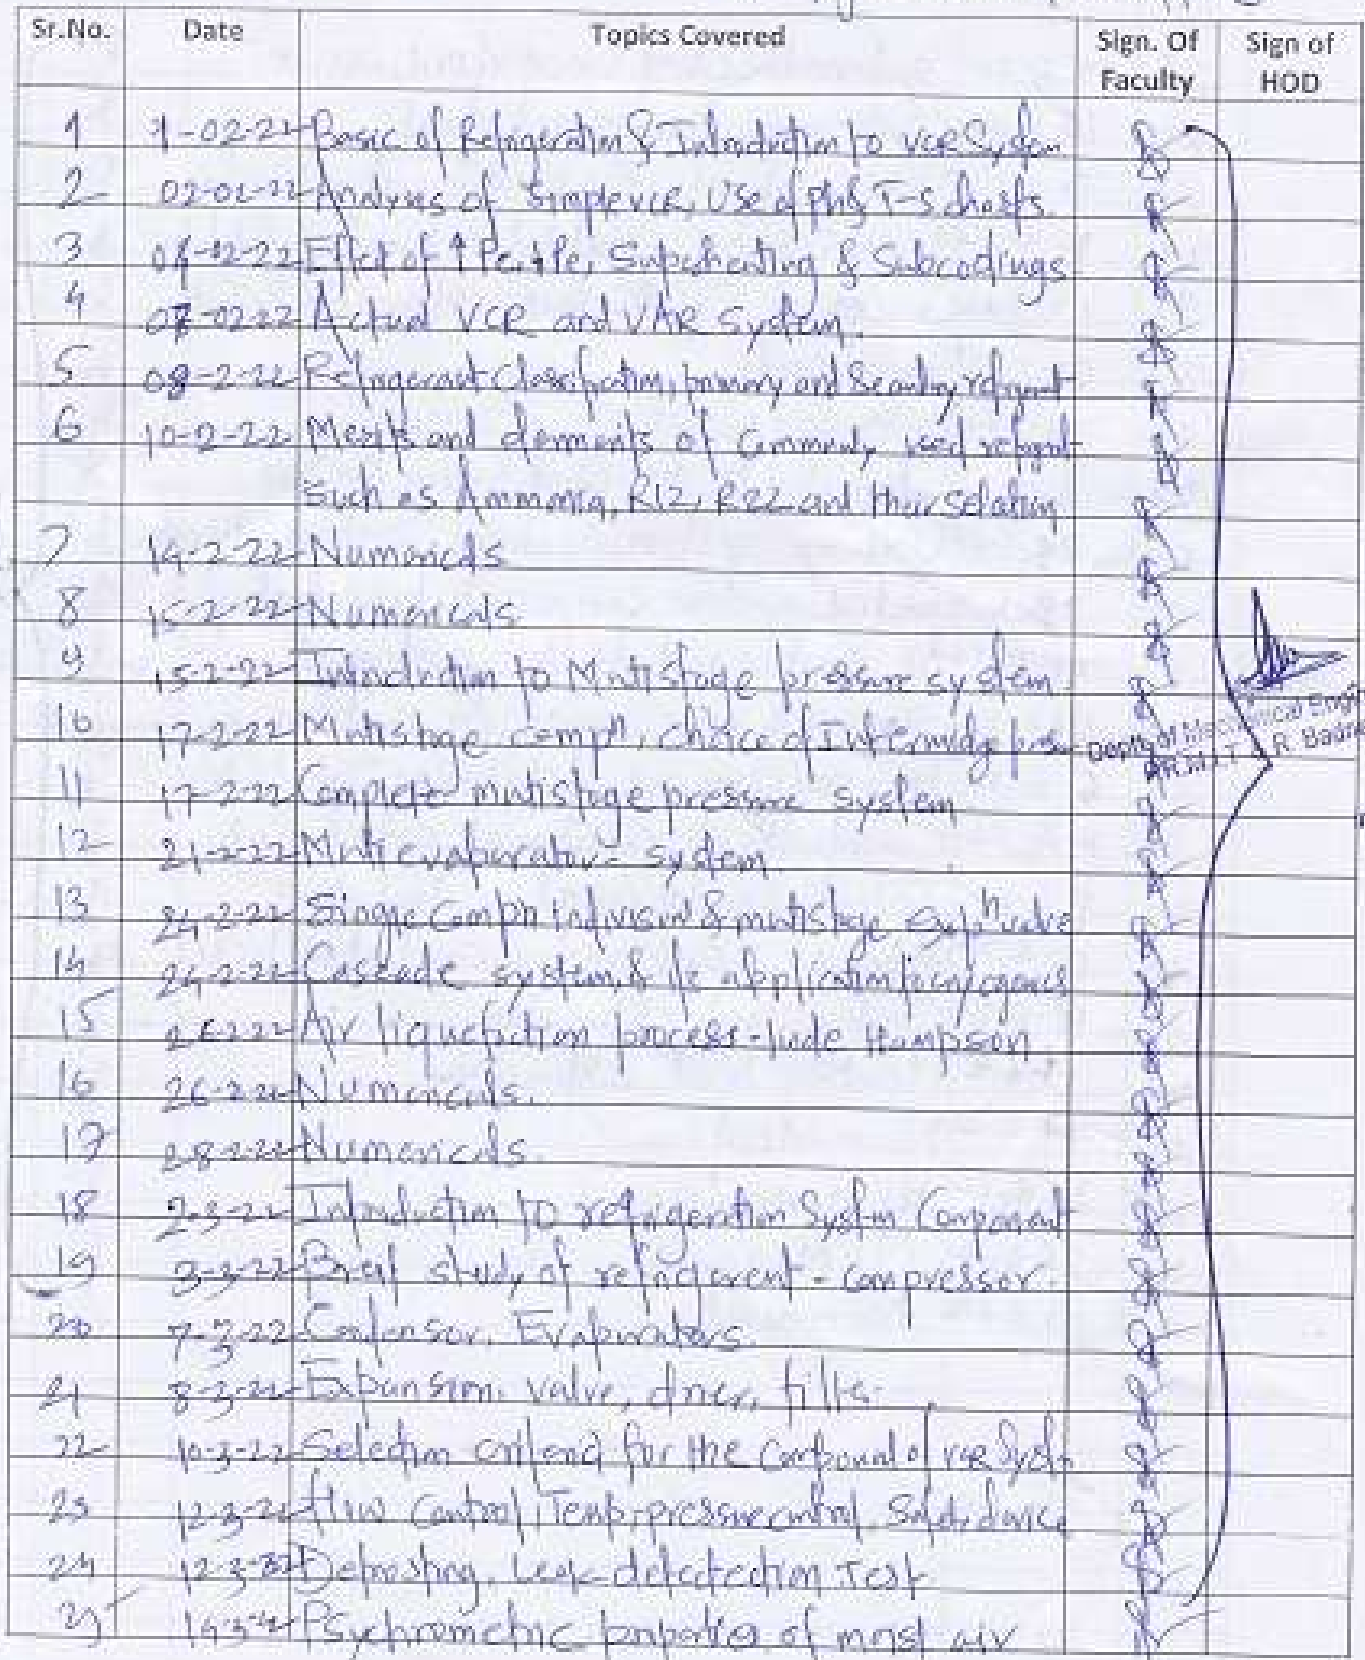 Sr.No. Date Topics Covered Sign. Of Faculty Sign of HOD
1 1-02-22 Basic of Refrigeration & Introduction to VCR System
2 02-02-22 Analysis of Simple VCR, Use of Ph & T-S charts.
3 04-02-22 Effect of ↑ Superheating & Subcoolings
4 07-02-22 Actual VCR and VAR System.
5 08-2-22 Refrigerant Classification, primary and Secondary refrigrant
6 10-2-22 Merits and demerits of Commonly used refrgnt
Such as Ammonia, R12, R22 and their Selation
7 14-2-22 Numericals
8 15-2-22 Numericals
9 15-2-22 Introduction to Mutistage pressure system
10 17-2-22 Mutistage compn, choice of
11 17-2-22 Complete mutistage pressure system
12 21-2-22 Muti evaporator system
13 24-2-22 Single Compn & mutistage
14 24-2-22 Cascade system, & its application
15 26-2-22 Air liquefaction process - Hampson,
16 26-2-22 Numericals.
17 28-2-22 Numericals.
18 2-3-22 Introduction to refrigeration System Component
19 3-3-22 Breif study of refrigerent - compressor.
20 7-3-22 Condensor, Evaporators.
21 8-3-22 Expansion valve, drier, filter
22 10-3-22 Selection criteria for the of VCR
23 12-3-22 Flow Control, Temp. pressure control,
24 12-3-22 Defrosting, Leak detectection Test
25 14-3-22 Psychrometric properties of moist air